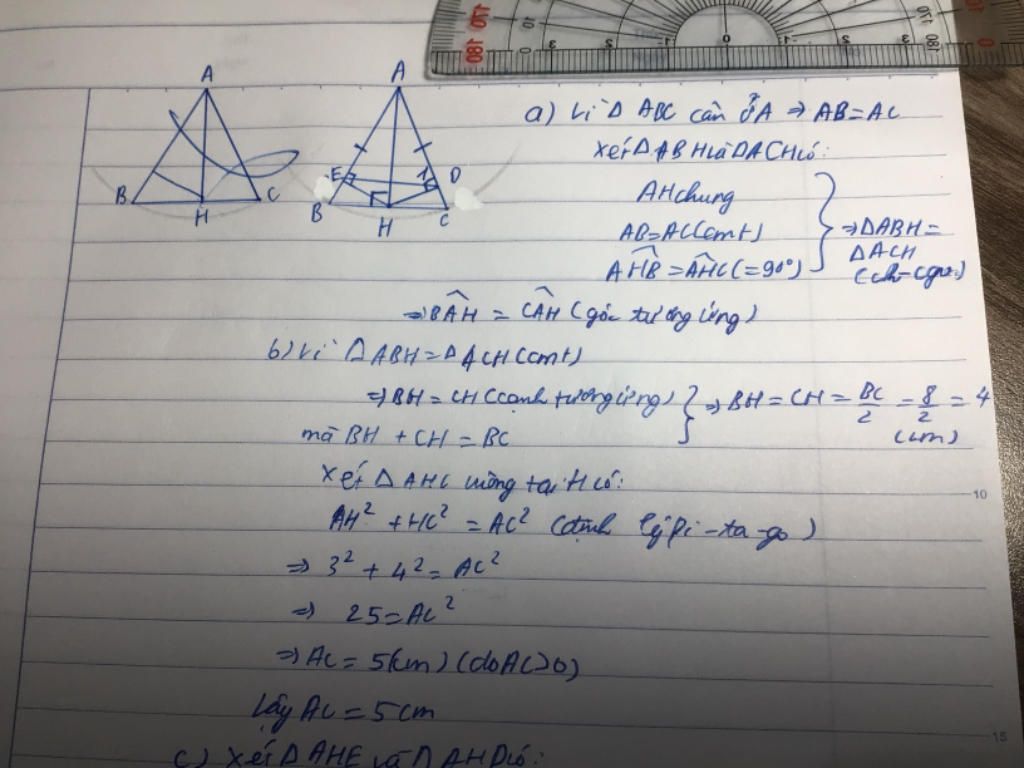 A
B
H
C
A
E
B
H
1
D
C
a) Vì Δ ABC cân ở A ⇒ AB = AC
Xét Δ ABH và Δ ACH có:
AH chung
AB = AC (cmt)
AHB = AHC (= 90°)
⇒ ΔABH = ΔACH (ch-cgv)
⇒ BAH = CAH (góc tương ứng)
b) Vì Δ ABH = Δ ACH (cmt)
⇒ BH = CH (cạnh tương ứng)
mà BH + CH = BC
⇒ BH = CH = BC/2 = 8/2 = 4 (cm)
Xét Δ AHC vuông tại H có:
AH² + HC² = AC² (định lý Pi-ta-go)
⇒ 3² + 4² = AC²
⇒ 25 = AC²
⇒ AC = 5 (cm) (do AC > 0)
Vậy AC = 5 cm
c) Xét Δ AHE và Δ AHD có:
10
15